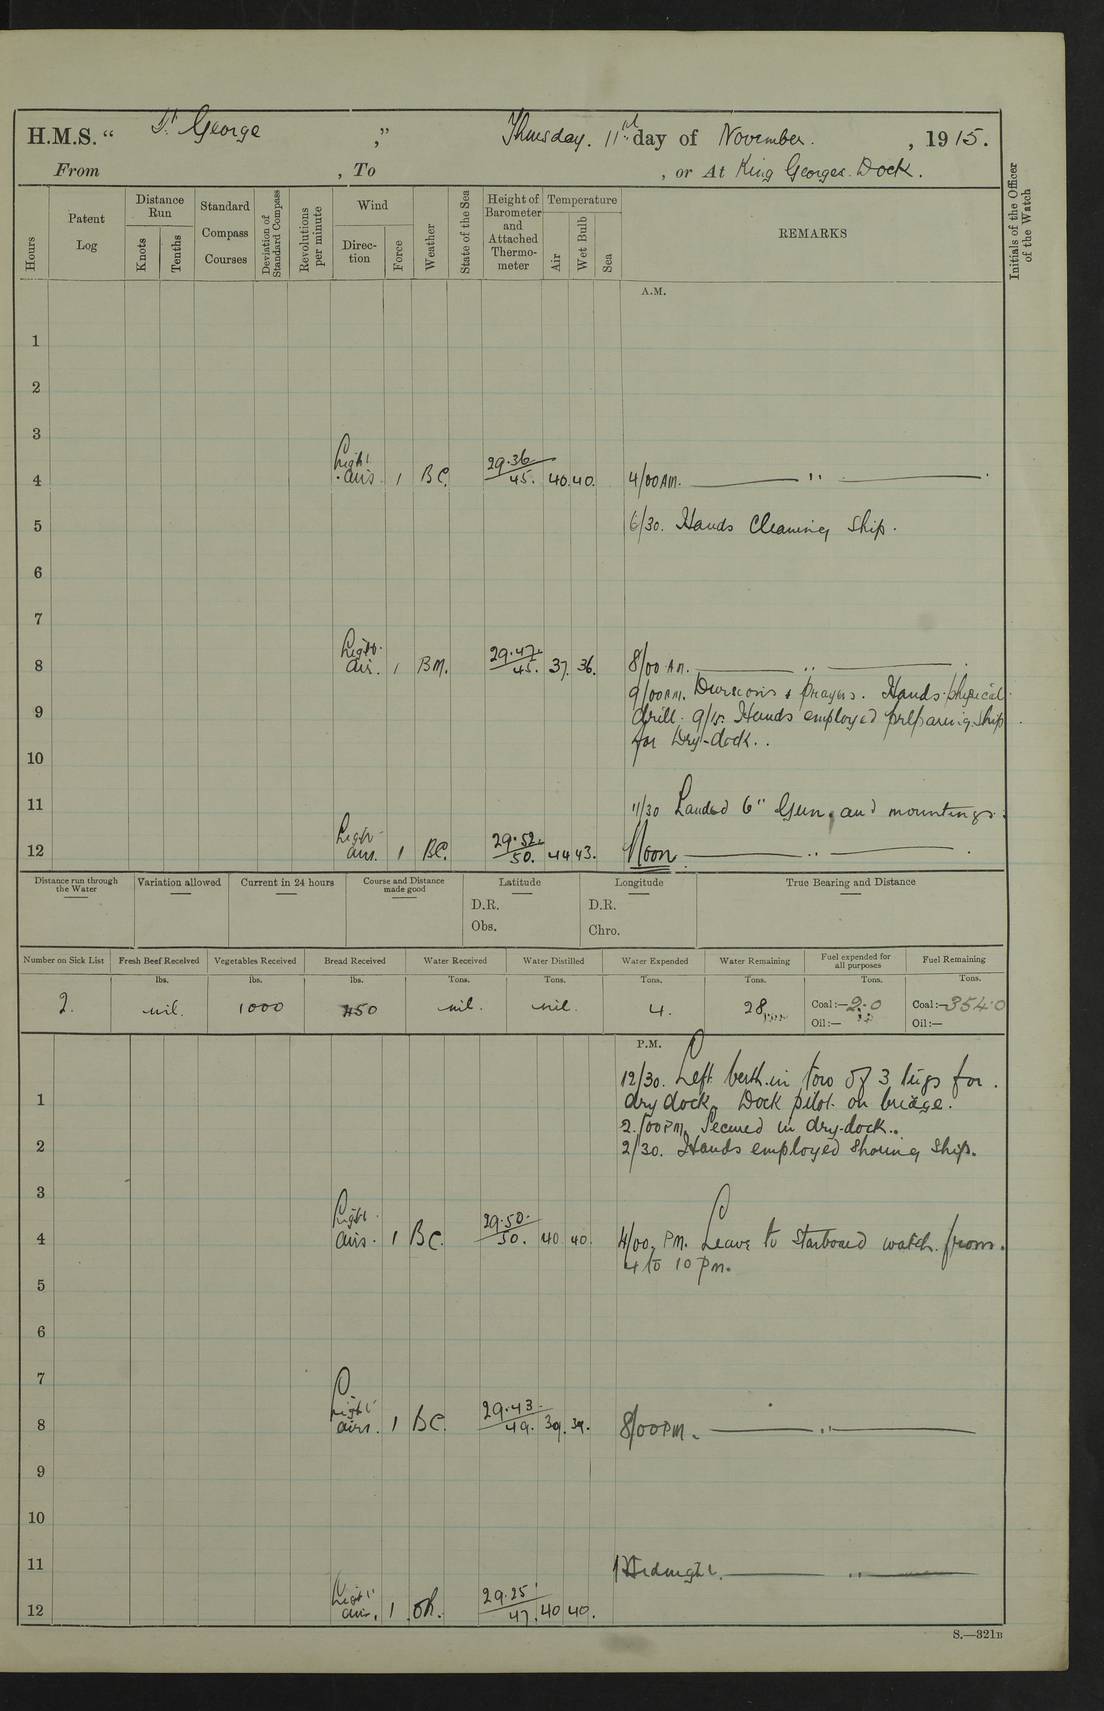 H.M.S. “ St George ,” Thursday. 11th day of November. , 1915.
From , To , or At King Georges Dock.
Hours
Patent Log
Distance Run
Knots
Tenths
Standard Compass Courses
Deviation of Standard Compass
Revolutions per minute
Wind
Direction
Force
Weather
State of the Sea
Height of Barometer and Attached Thermometer
Temperature
Air
Wet Bulb
Sea
REMARKS
Initials of the Officer of the Watch
A.M.
1
2
3
4 Light airs. 1 BC. 29.36 45. 40. 40. 4/00 AM. ——— " ———
5 6/30. Hands Cleaning Ship.
6
7
8 Light air. 1 BM. 29.47. 45. 37. 36. 8/00 AM. ——— " ———
9/00 AM. Divisions & Prayers. Hands physical
9 drill. 9/15. Hands employed preparing ship
for Dry-dock..
10
11 11/30 Landed 6" Gun, and mountings.
12 Light airs. 1 BC. 29.52. 50. 44 43. Noon ——— " ———
Distance run through the Water
Variation allowed
Current in 24 hours
Course and Distance made good
Latitude
D.R.
Obs.
Longitude
D.R.
Chro.
True Bearing and Distance
Number on Sick List
Fresh Beef Received
Vegetables Received
Bread Received
Water Received
Water Distilled
Water Expended
Water Remaining
Fuel expended for all purposes
Fuel Remaining
lbs. lbs. lbs. Tons. Tons. Tons. Tons. Tons. Tons.
2. nil. 1000 450 nil. nil. 4. 28 Coal:— 2.0 Coal:— 354.0
Oil:— Oil:—
P.M.
12/30. Left berth in tow of 3 tugs for
1 dry dock. Dock pilot on bridge.
2/00 PM. Secured in dry-dock..
2 2/30. Hands employed shoring ship.
3
4 Light airs. 1 BC. 29.50. 50. 40 40. 4/00 PM. Leave to starboard watch from
4 to 10 pm.
5
6
7
8 Light airs. 1 BC. 29.43. 49. 39. 39. 8/00 PM. ——— " ———
9
10
11 Midnight. ——— " ———
12 Light airs. 1 29.25 47. 40 40.
S.—321B